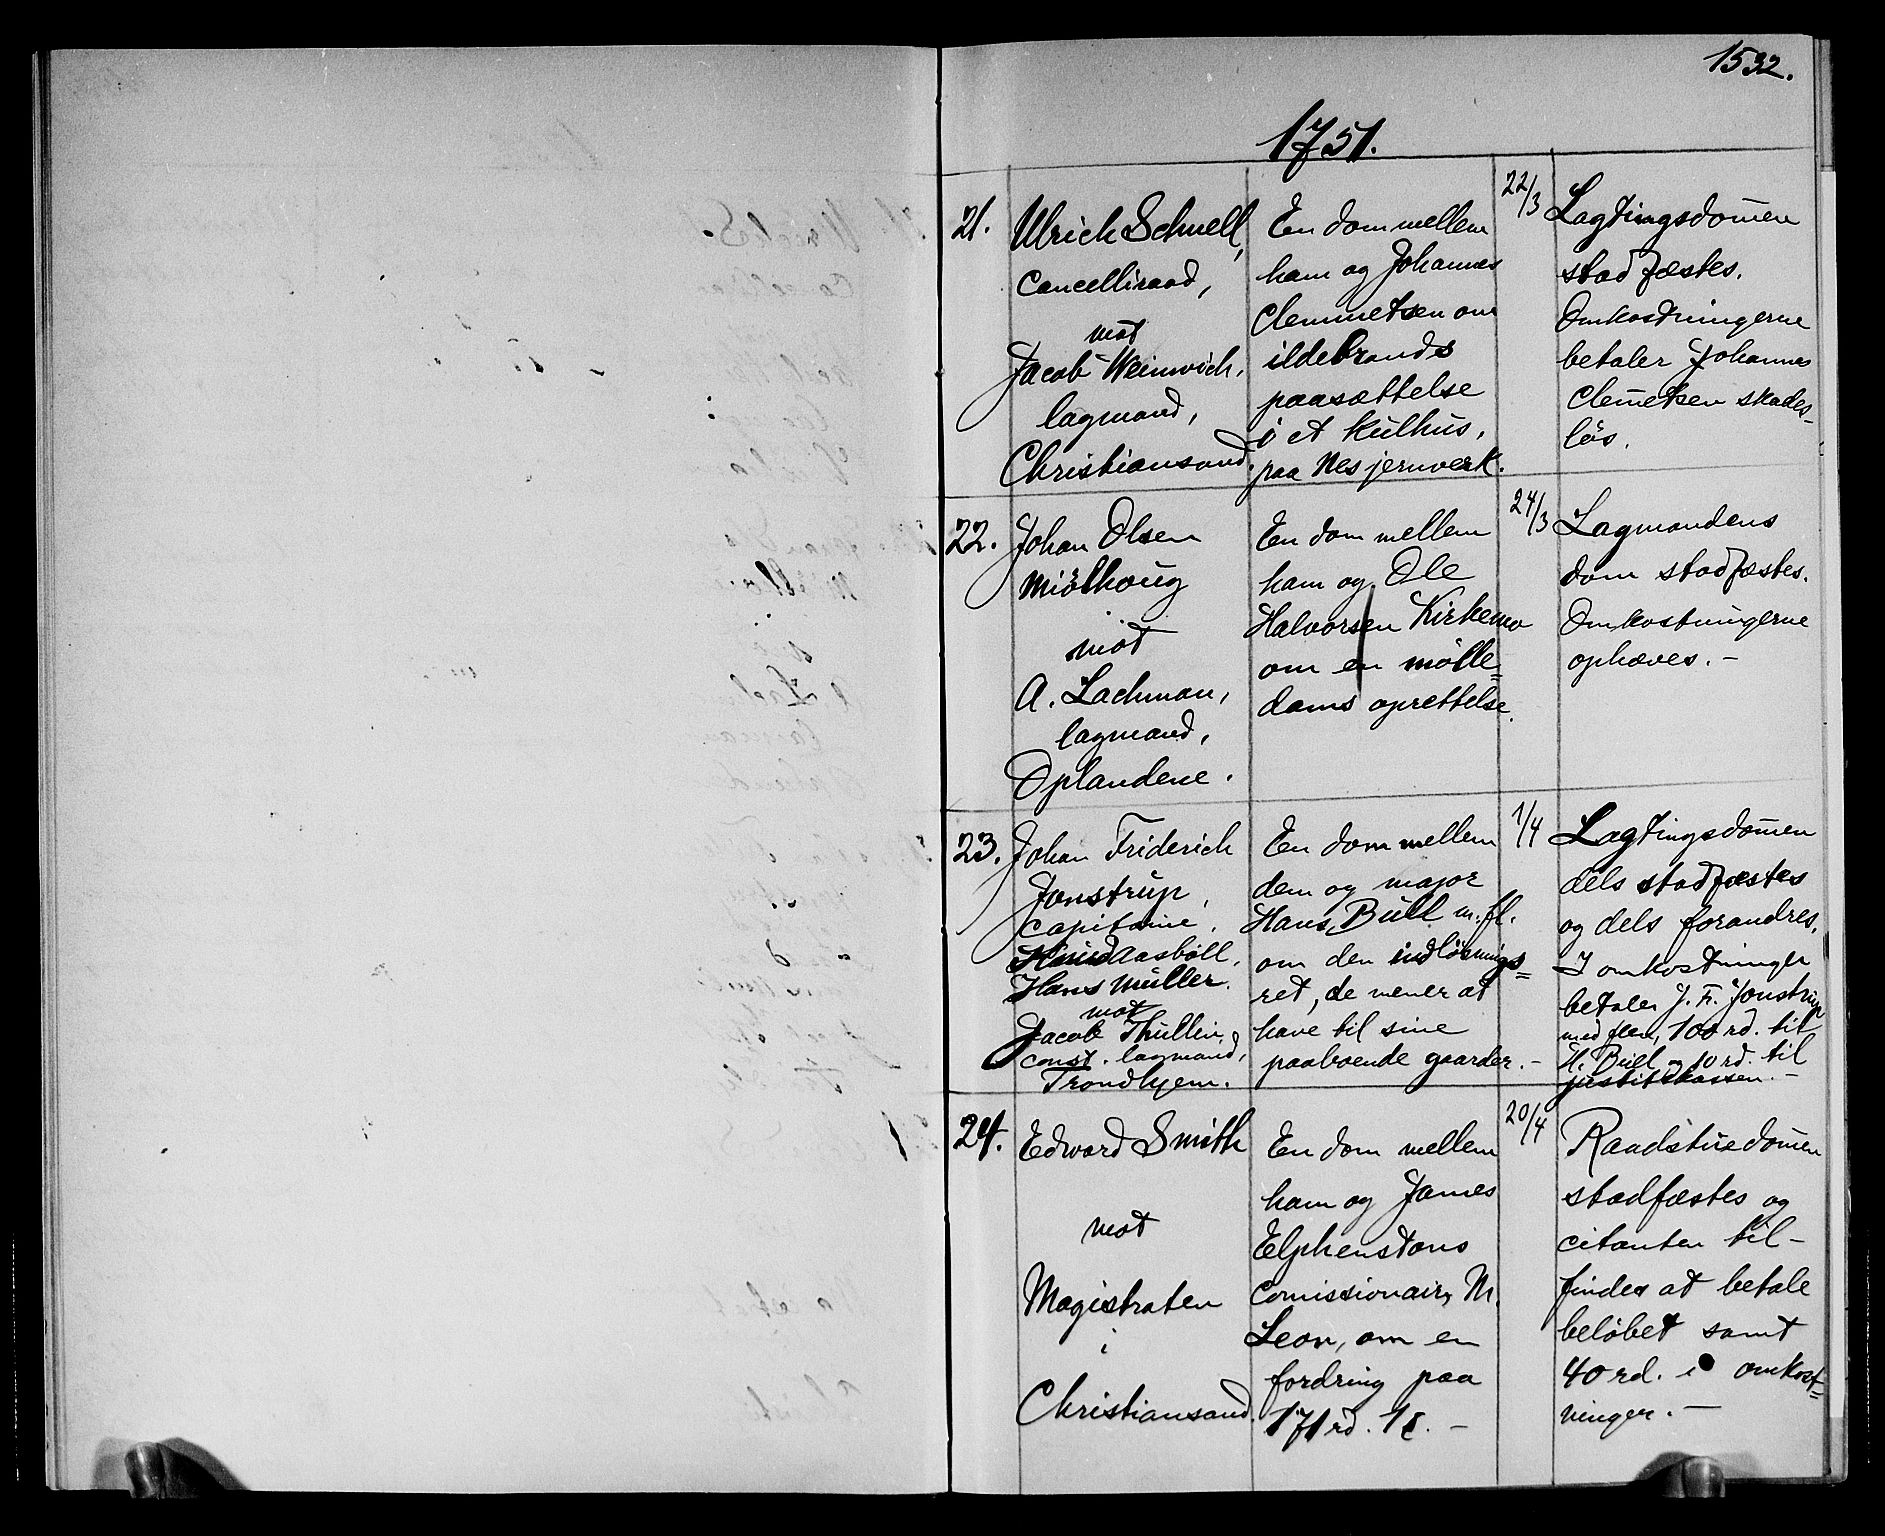 1532.
1751.
21.
Ulrich Schnell,
Cancelliraad,
mot
Jacob Weinwich,
lagmand,
Christiansand.
En dom mellem
ham og Johannes
Clemmetsen om
ildebrands
paasættelse
i et kulhus,
paa Nes jernverk.
22/3
Lagtingsdom̅en
stadfæstes.
Omkostningerne
betaler Johannes
Clem̅etsen skades-
løs.
22.
Johan Olsen
Miölhoug
mot
A. Lachman,
lagmand,
Oplandene.
En dom mellem
ham og Ole
Halvorsen Kirkemo
om en mölle=
dams oprettelse.
24/3
Lagmandens
dom stadfæstes.
Omkostningerne
ophæves. –
23.
Johan Friderich
Jonstrup,
Capitaine.
Knud Aasböll.
Hans Müller.
mot
Jacob Thullin,
const. lagmand,
Trondhjem.
En dom mellem
dem og major
Hans Büll m. fl.
om den indlösnings=
ret, de mener at
have til sine
paaboende gaarder. –
1/4
Lagtingsdom̅en
dels stadfæstes
og dels forandres.
I omkostninger
betaler J. Fr. Jonstrup
med flere, 100 rd. til
H. Büll og 10 rd. til
justitskassen. –
24.
Edward Smith
mot
Magistraten
i
Christiansand.
En dom mellem
ham og James
Elphenstons
Com̅issionair, M.
Leon, om en
fordring paa
171 rd. 1 s. –
20/4
Raadstuedom̅en
stadfæstes og
citanten til-
findes at betale
beløbet samt
40 rd. i omkost=
ninger. –